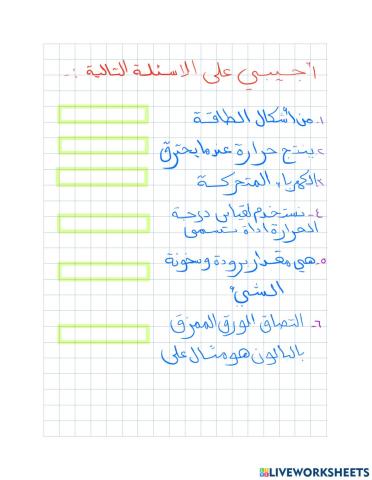 أجيبي على الاسئلة التالية :-
١- من أشكال الطاقة
٢- ينتج حرارة عندما يحترق
٣- الكهرباء المتحركة
٤- نستخدم لقياس درجة
الحرارة اداة تسمى
٥- هي مقدار برودة وسخونة
الشيء
٦- التصاق الورق الممزق
بالبالون هو مثال على
LIVEWORKSHEETS